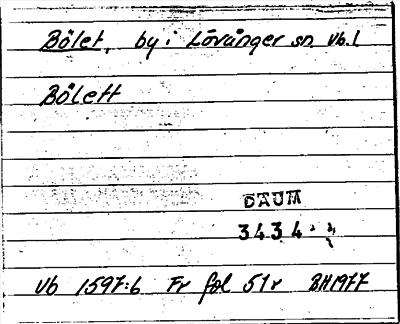 Bölet, by i Lövånger sn. Vb. l
Bölett
DAUM
3434
Vb 1597:6 Fr fol 51r BH1977